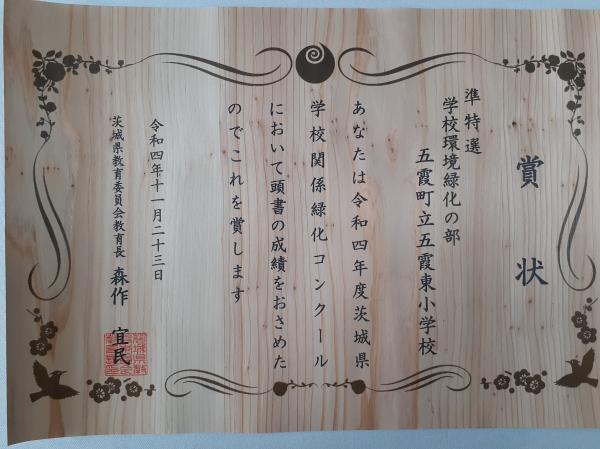 賞状
準特選
学校環境緑化の部
五霞町立五霞東小学校
あなたは令和四年度茨城県
学校関係緑化コンクール
において頭書の成績をおさめた
のでこれを賞します
令和四年十一月二十三日
茨城県教育委員会教育長 森作 宜民